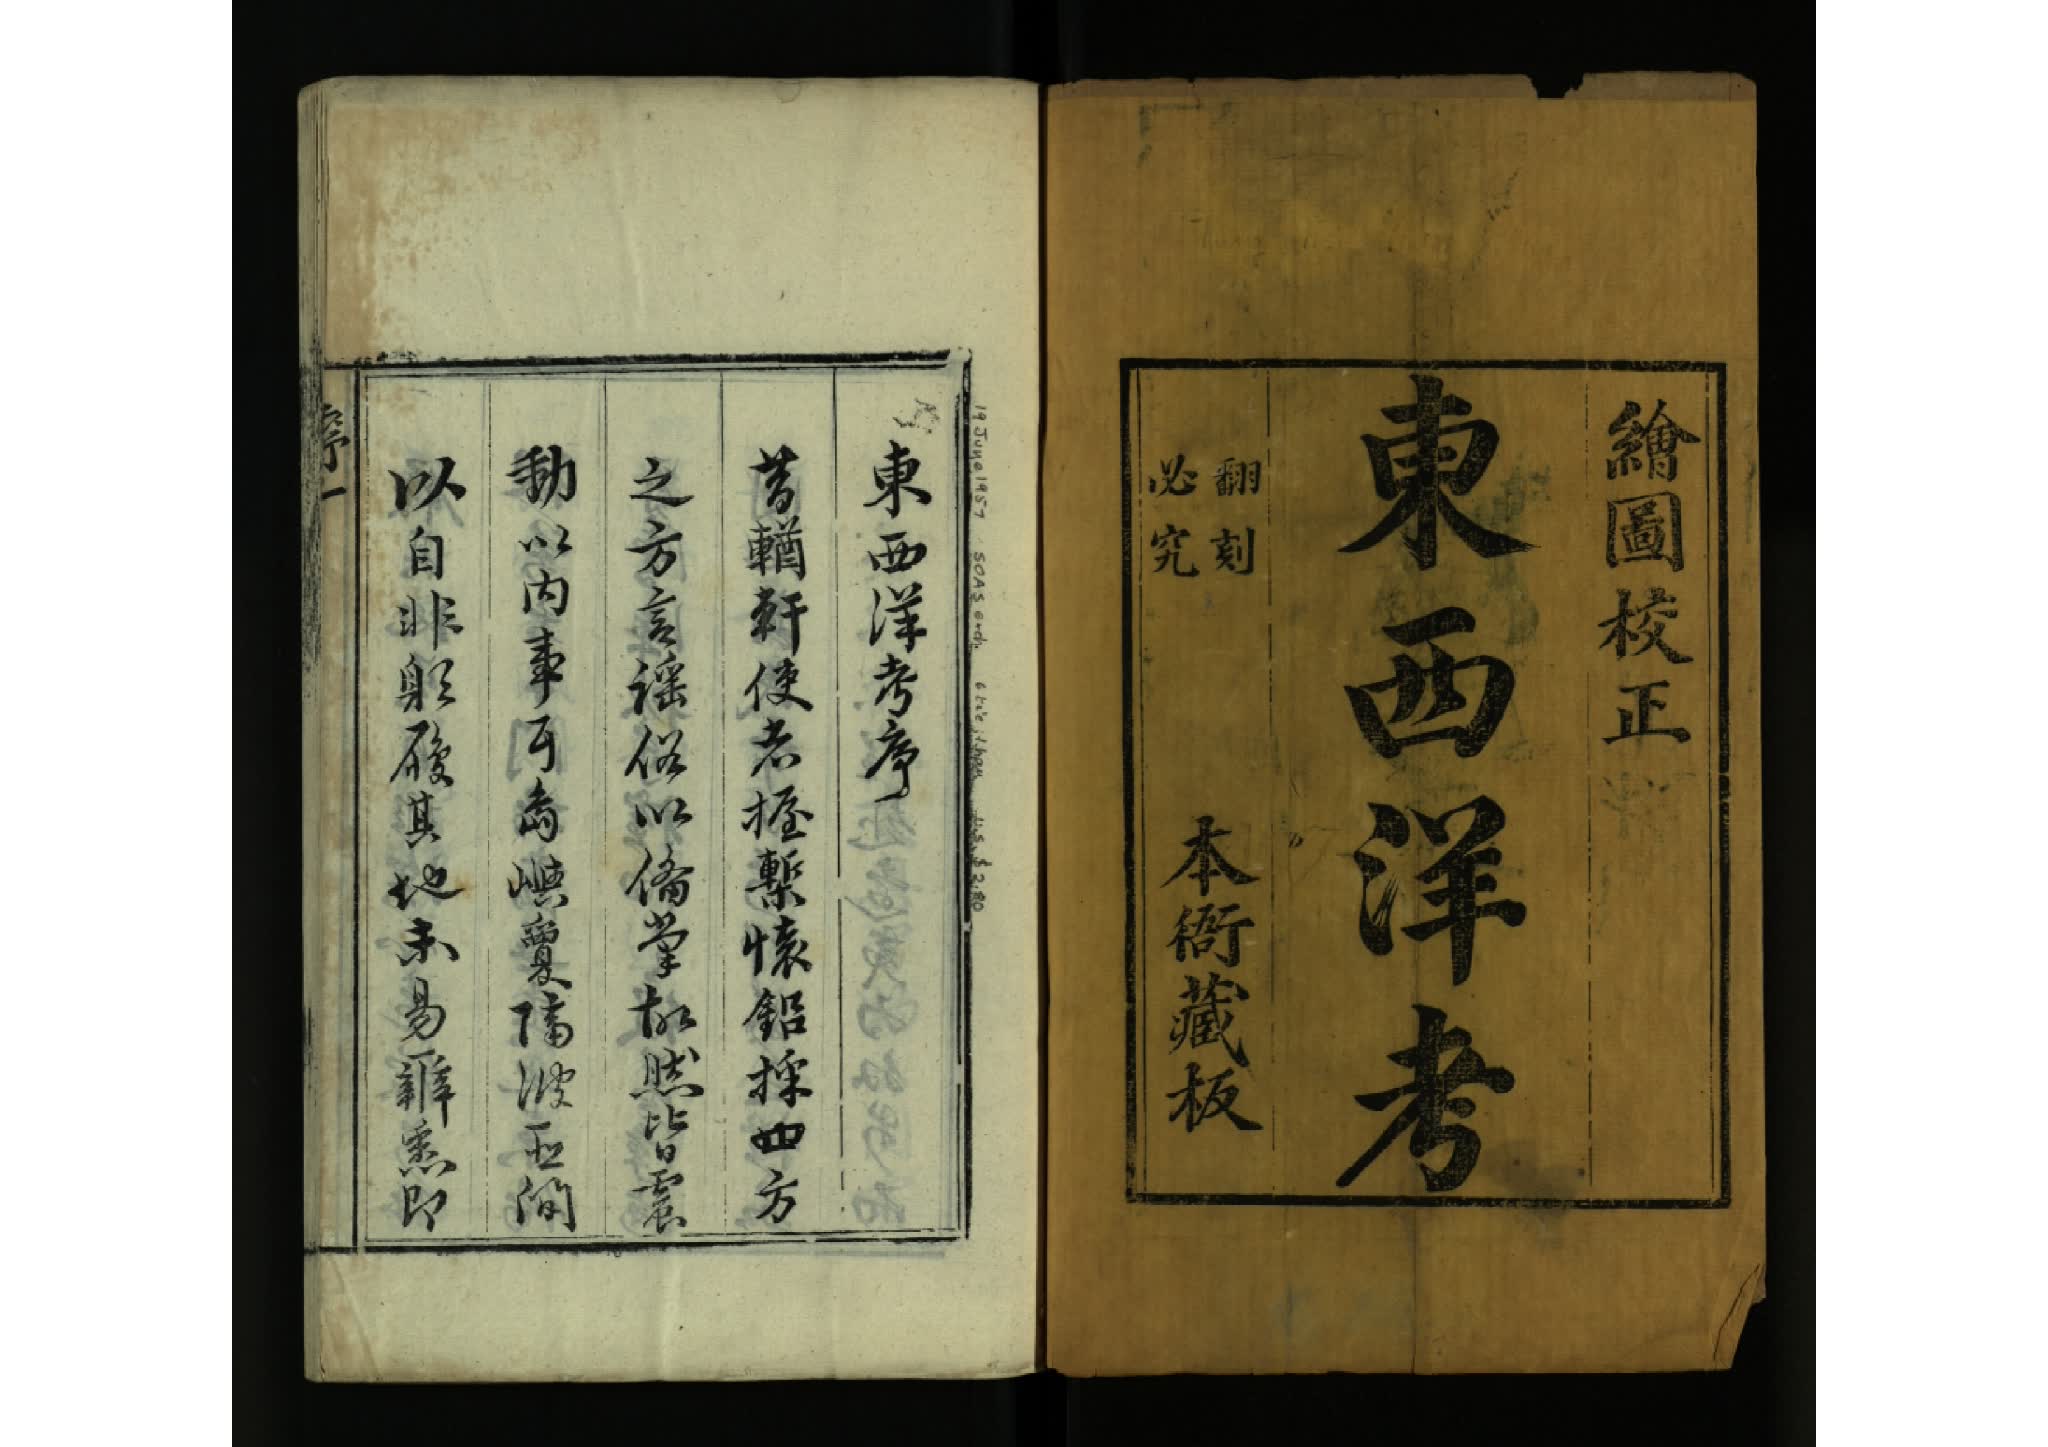 繪圖校正
東西洋考
翻刻
必究
本衙藏板
東西洋考序
昔輶軒使者握槧懷鉛採四方
之方言謠俗以備掌故然皆震
動以內事耳島嶼夐隔波臣間
以自非躬履其地未易辯悉即
序一
19 June 1957 SOAS